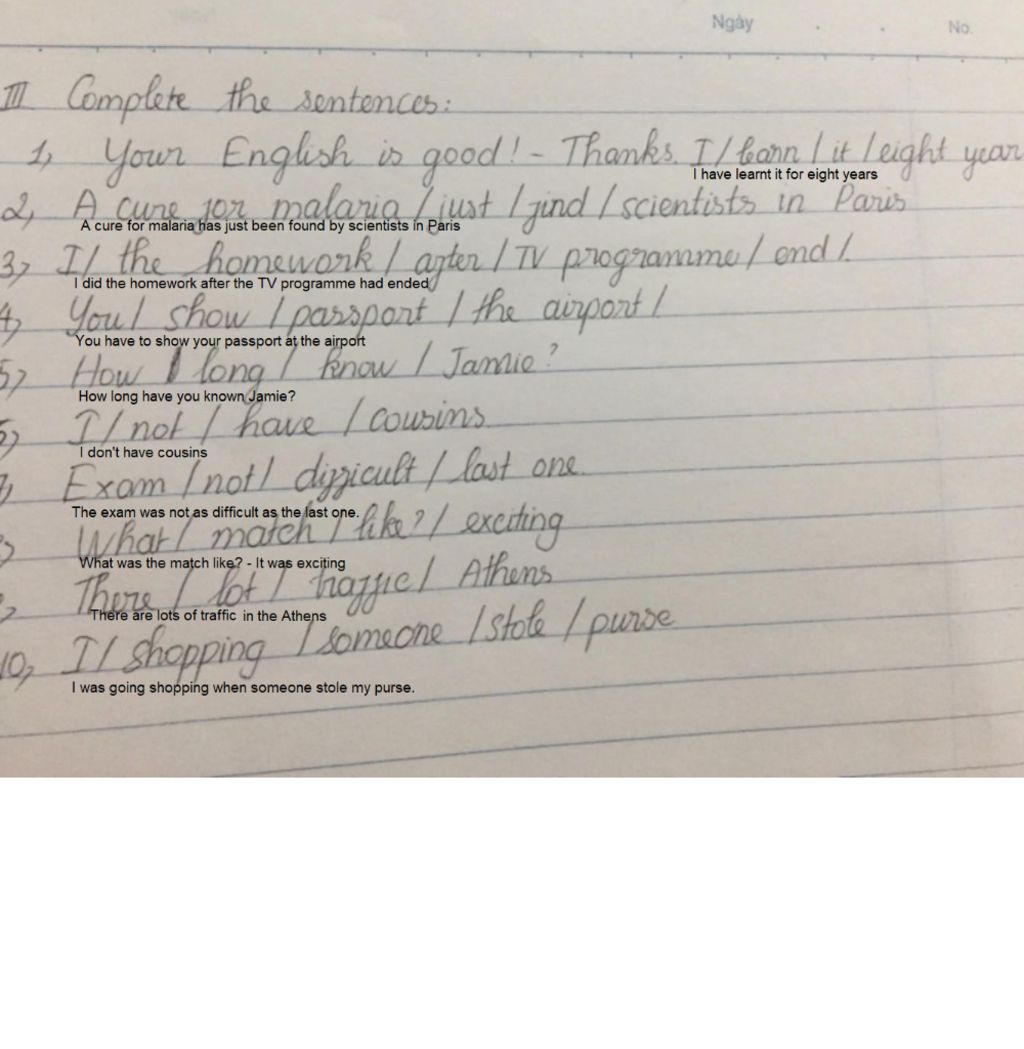 Ngày
No.
III Complete the sentences:
1, Your English is good! - Thanks. I / learn / it / eight year
I have learnt it for eight years
2, A cure for malaria / just / find / scientists in Paris
A cure for malaria has just been found by scientists in Paris
3, I / the homework / after / TV programme / end /.
I did the homework after the TV programme had ended
4, You / show / passport / the airport /
You have to show your passport at the airport
5, How / long / know / Jamie?
How long have you known Jamie?
I / not / have / cousins
I don't have cousins
Exam / not / difficult / last one.
The exam was not as difficult as the last one.
What / match / like? / exciting
What was the match like? - It was exciting
There / lot / traffic / Athens
There are lots of traffic in the Athens
10, I / shopping / someone / stole / purse
I was going shopping when someone stole my purse.